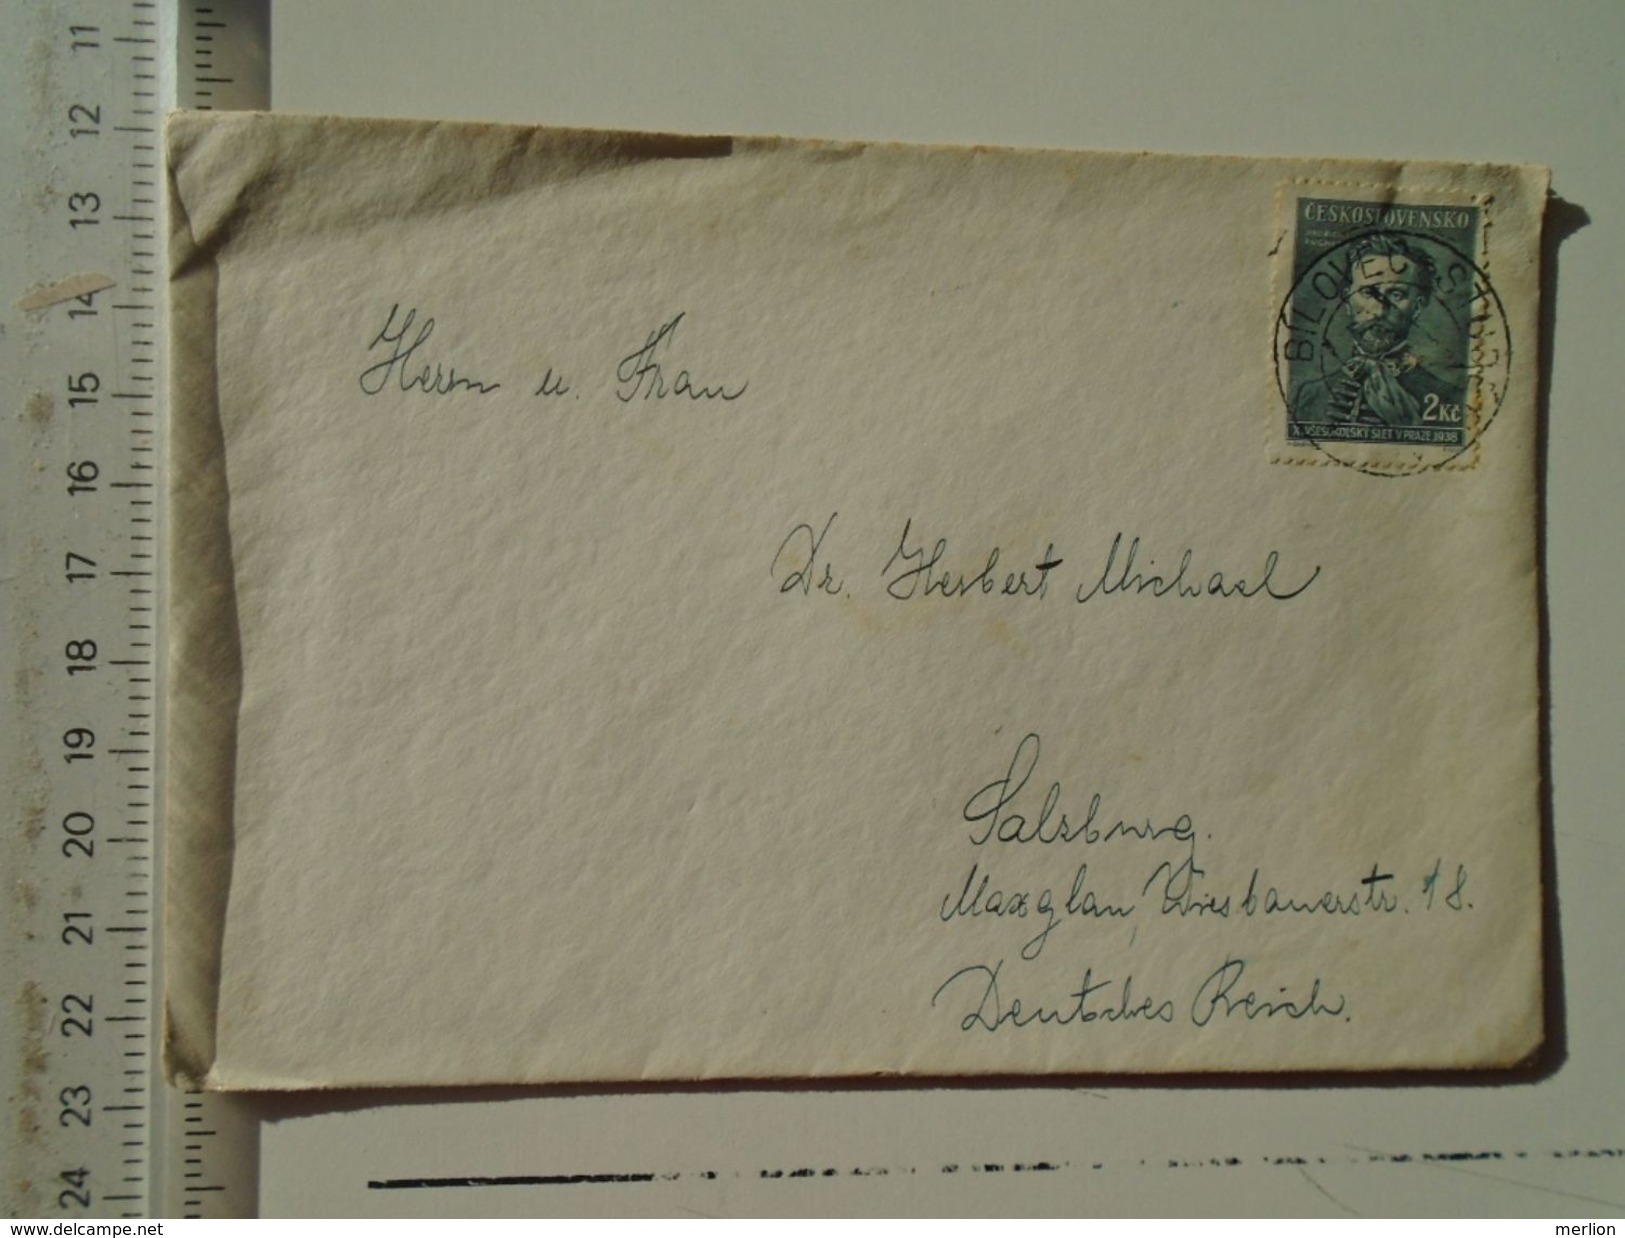 11
12
13
14
15
16
17
18
19
20
21
22
23
24
ČESKOSLOVENSKO
2 Kč
X. VŠESOKOLSKÝ SLET V PRAZE 1938
BÍLOVEC
Herrn u. Frau
Dr. Herbert Michael
Salzburg.
Maxglan, Wiesbauerstr. 18.
Deutsches Reich.
www.delcampe.net
merlion